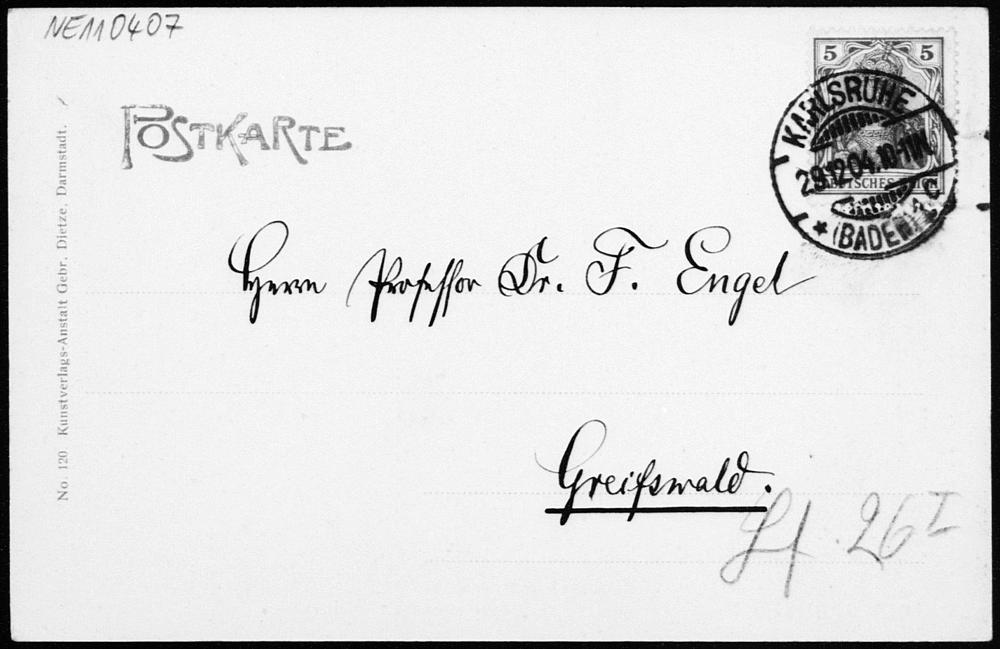 NE110407
5 5
KARLSRUHE
29.12.04.10-11V.
DEUTSCHES REICH
* (BADEN) 1 c
POSTKARTE
Herrn Professor Dr. F. Engel
Greifswald.
26 I
No. 120 Kunstverlags-Anstalt Gebr. Dietze, Darmstadt.